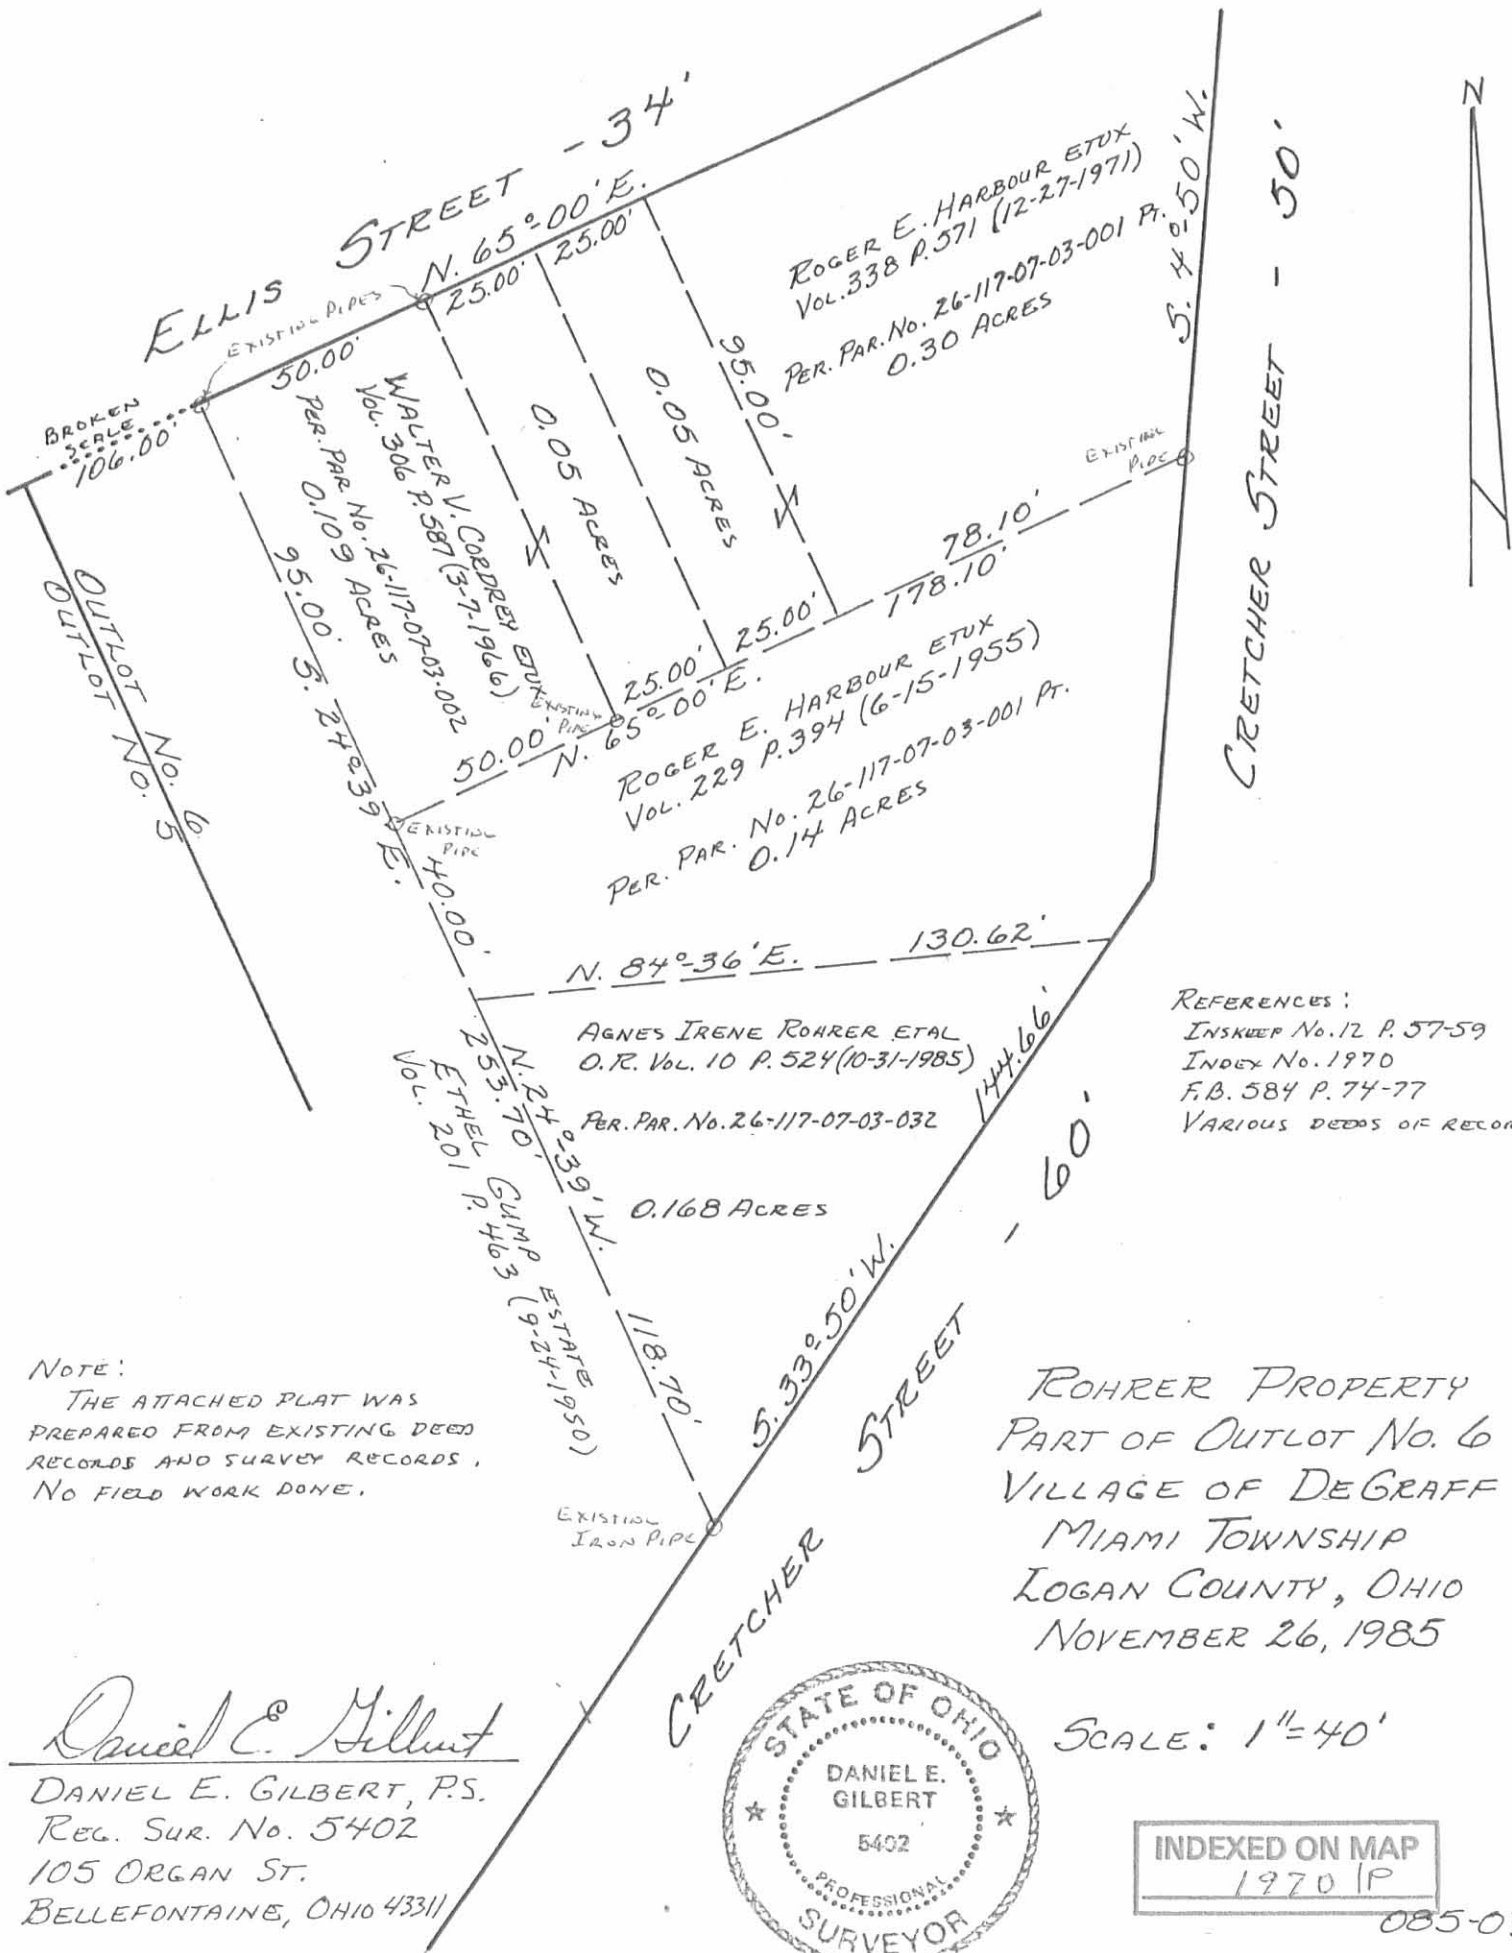 ELLIS STREET - 34'
N. 65°-00' E.
EXISTING PIPES
50.00'
25.00'
25.00'
BROKEN
SCALE
106.00'
OUTLOT No. 6
OUTLOT No. 5
WALTER V. CORDREY ETUX
VOL. 306 P. 587 (3-7-1966)
PER. PAR No. 26-117-07-03-002
0.109 ACRES
0.05 ACRES
0.05 ACRES
95.00'
ROGER E. HARBOUR ETUX
VOL. 338 P. 571 (12-27-1971)
PER. PAR. No. 26-117-07-03-001 PT.
0.30 ACRES
S. 4°-50' W.
CRETCHER STREET - 50'
N
EXISTING
PIPE
78.10'
178.10'
95.00'
S. 24°-39' E.
50.00'
EXISTING
PIPE
25.00'
25.00'
N. 65°-00' E.
ROGER E. HARBOUR ETUX
VOL. 229 P. 394 (6-15-1955)
PER. PAR. No. 26-117-07-03-001 PT.
0.14 ACRES
EXISTING
PIPE
40.00'
N. 84°-36' E. 130.62'
AGNES IRENE ROHRER ETAL
O.R. VOL. 10 P. 524 (10-31-1985)
PER. PAR. No. 26-117-07-03-032
0.168 ACRES
144.66'
N. 24°-39' W.
253.70'
ETHEL GUMP ESTATE
VOL. 201 P. 463 (9-24-1950)
118.70'
S. 33°-50' W.
CRETCHER STREET - 60'
EXISTING
IRON PIPE
REFERENCES:
INSKEEP No. 12 P. 57-59
INDEX No. 1970
F.B. 584 P. 74-77
VARIOUS DEEDS OF RECOR
NOTE:
THE ATTACHED PLAT WAS
PREPARED FROM EXISTING DEED
RECORDS AND SURVEY RECORDS,
NO FIELD WORK DONE.
ROHRER PROPERTY
PART OF OUTLOT No. 6
VILLAGE OF DEGRAFF
MIAMI TOWNSHIP
LOGAN COUNTY, OHIO
NOVEMBER 26, 1985
SCALE: 1"=40'
Daniel E. Gilbert
DANIEL E. GILBERT, P.S.
REG. SUR. No. 5402
105 ORGAN ST.
BELLEFONTAINE, OHIO 43311
STATE OF OHIO
DANIEL E.
GILBERT
5402
PROFESSIONAL
SURVEYOR
INDEXED ON MAP
1970 IP
085-0